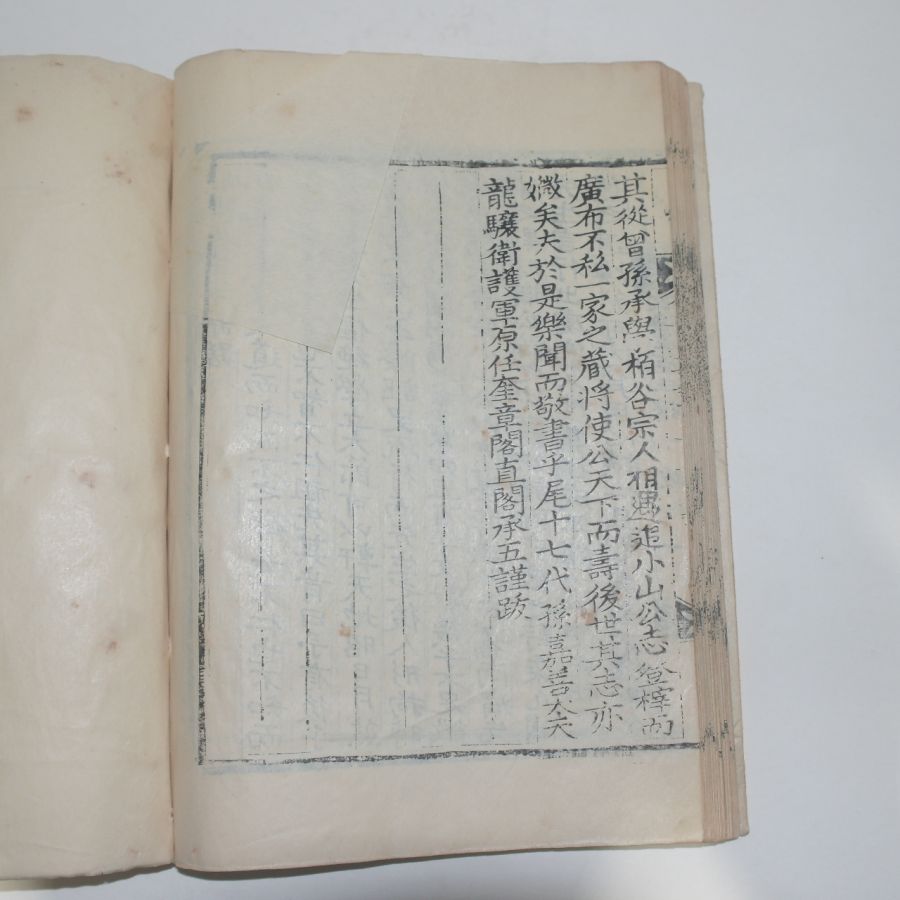 其從曾孫承與栢谷宗人相遇追小山公志登梓而
廣布不私一家之藏將使公天下而壽後世其志亦
微矣夫於是樂聞而敬書乎尾十七代孫嘉善大夫
龍驤衛護軍原任奎章閣直閣承五謹跋